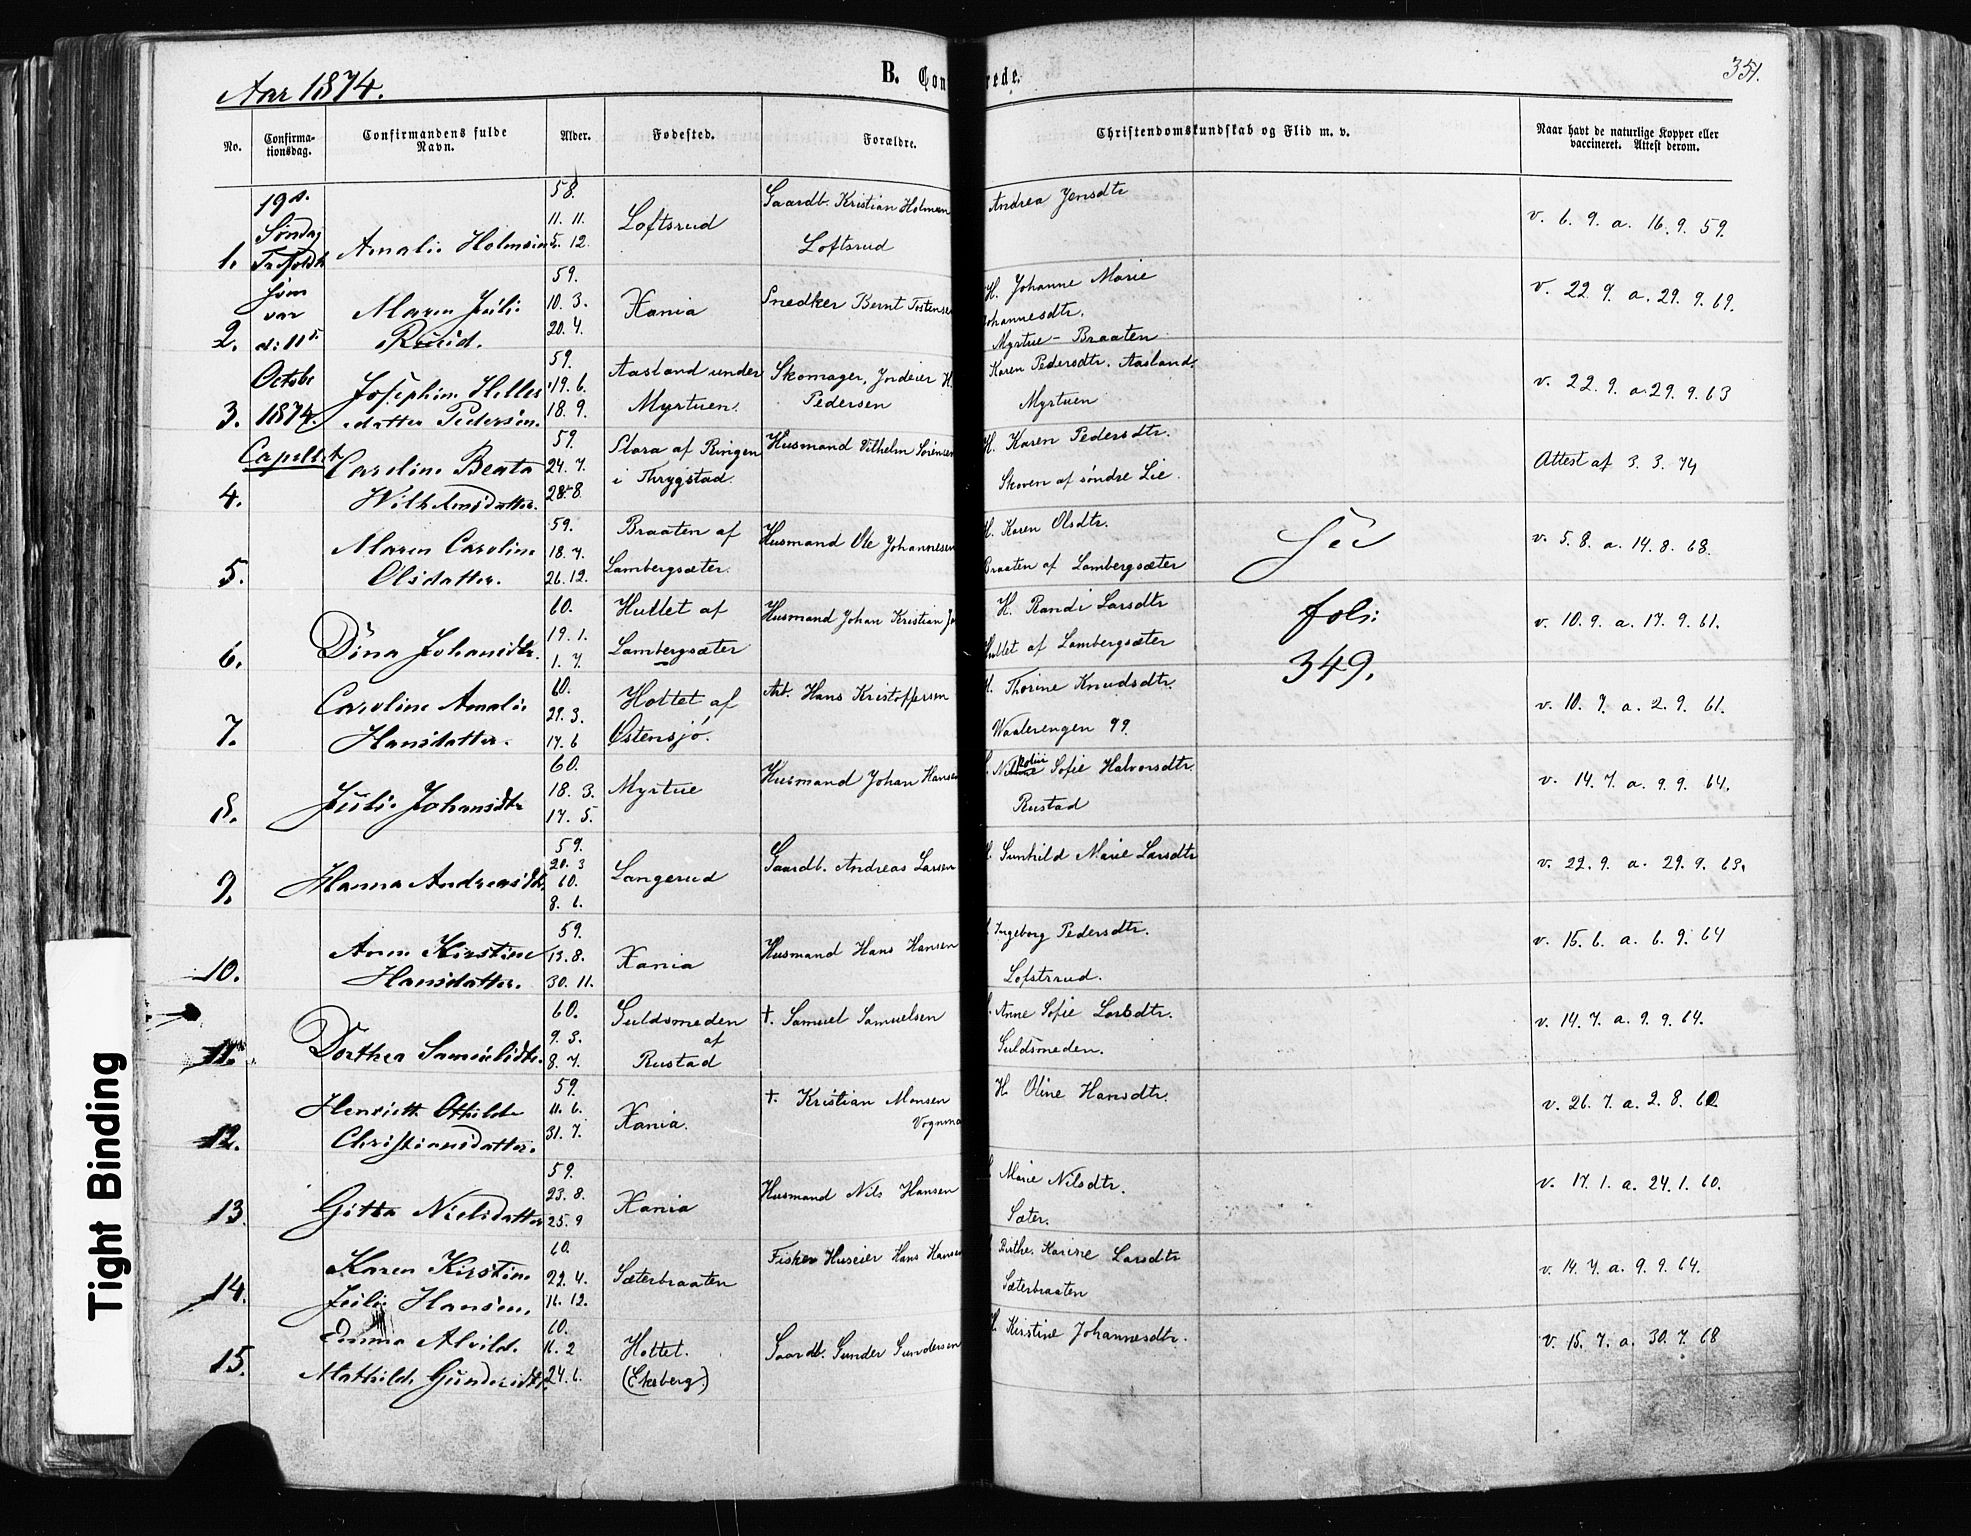 Aar 1874.
B. Con rede.
351.
No.
Confirma-
tionsdag.
Confirmandens fulde
Navn.
Alder.
Fødested.
Forældre.
Christendomskundskab og Flid m. v.
Naar havt de naturlige Kopper eller
vaccineret. Attest derom.
19de
Søndag
som
var
11
1874.
1.
Amalie
58.
11. 11.
5. 12.
Loftsrud
Gaardb. Kristian Holmsen
Loftsrud
Andrea Jensdtr
v. 6. 9. a. 16. 9. 59.
2.
Maren Julie
Ruud.
59.
10. 3.
20. 4.
Xania
Snedker Bernt Tostensen
H. Johanne Marie
Johannesdtr.
Myrtue - Braaten
v. 22. 9. a. 29. 9. 69.
3.
Josephine
Pedersen.
59.
19. 6.
18. 9.
Aasland under
Myrtuen.
Skomager, Jordeier H.
Pedersen
Karen Pedersdtr. Aasland.
Myrtuen
v. 22. 9. a. 29. 9. 63
4.
Caroline Beata
Wilhelmsdatter.
59.
24. 7.
28. 8.
af Ringen
i Thrygstad.
Husmand Vilhelm Sørensen
H. Karen Pedersdtr.
Skoven af søndre Lie.
Attest af 3. 3. 74
5.
Maren Caroline
Olsdatter.
59.
18. 7.
26. 12.
Braaten af
Lambergsæter.
Husmand Ole Johannesen
H. Karen Olsdtr.
Braaten af Lambergsæter
v. 5. 8. a. 14. 8. 68.
See
foli:
349.
6.
Dina Johansdtr.
60.
19. 1.
1. 7.
Hullet af
Lambergsæter
Husmand Johan Kristian
H. Randi Larsdtr
Hullet af Lambergsæter
v. 10. 9. a. 17. 9. 61.
7.
Caroline Amalie
Hansdatter.
60.
29. 3.
17. 6
Hottet af
Østensjö.
Arb. Hans Kristoffersen
H. Thorine Knudsdtr.
Waalerengen 99.
v. 10. 7. a. 2. 9. 61.
8.
Julie Johansdtr
60.
18. 3.
17. 5.
Myrtue
Husmand Johan Hansen
Sofie Halvorsdtr.
Rustad
v. 14. 7. a. 9. 9. 64.
9.
Hanna Andreasdtr.
59.
20. 3
60.
8. 6.
Langerud
Gaardb. Andreas Larsen
Gunhild Marie Larsdtr
v. 22. 9. a. 29. 9. 63.
10.
Anne Kirstine
Hansdatter.
59.
13. 8.
30. 11.
Xania
Husmand Hans Hansen
Ingeborg Pedersdtr.
Lofstrud.
v. 15. 6. a. 6. 9. 64
11.
Dorthea Samuelsdtr.
60.
9. 3.
8. 7.
Guldsmeden
af
Rustad
†. Samuel Samuelsen
Anne Sofie Larsdtr.
Guldsmeden.
v. 14. 7. a. 9. 9. 64.
12.
Othilde
Christiansdatter.
59.
11. 6.
31. 7.
Xania.
†. Kristian Monsen
Vognma
H. Oline Hansdtr.
v. 26. 7. a. 2. 8. 60
13.
Gitta Nielsdatter
59.
23. 8.
25. 9
Xania
Husmand Nils Hansen
Marie Nilsdtr.
Sæter.
v. 17. 1. a. 24. 1. 60.
14.
Karen Kirstine
Julie Hansen.
60.
22. 4.
16. 12.
Sæterbraaten
Fisker Huseier Hans Hansen
Birthe Karine Larsdtr
Sæterbraaten
v. 14. 7. a. 9. 9. 64.
15.
Emma Alvilde
Mathilde Gundersdtr.
60.
11. 2
24. 6.
Hottet.
(Ekeberg.)
Gaardb. Gunder Gundersen
H. Kirstine Johannesdtr.
v. 15. 7. a. 30. 7. 68
Tight Binding